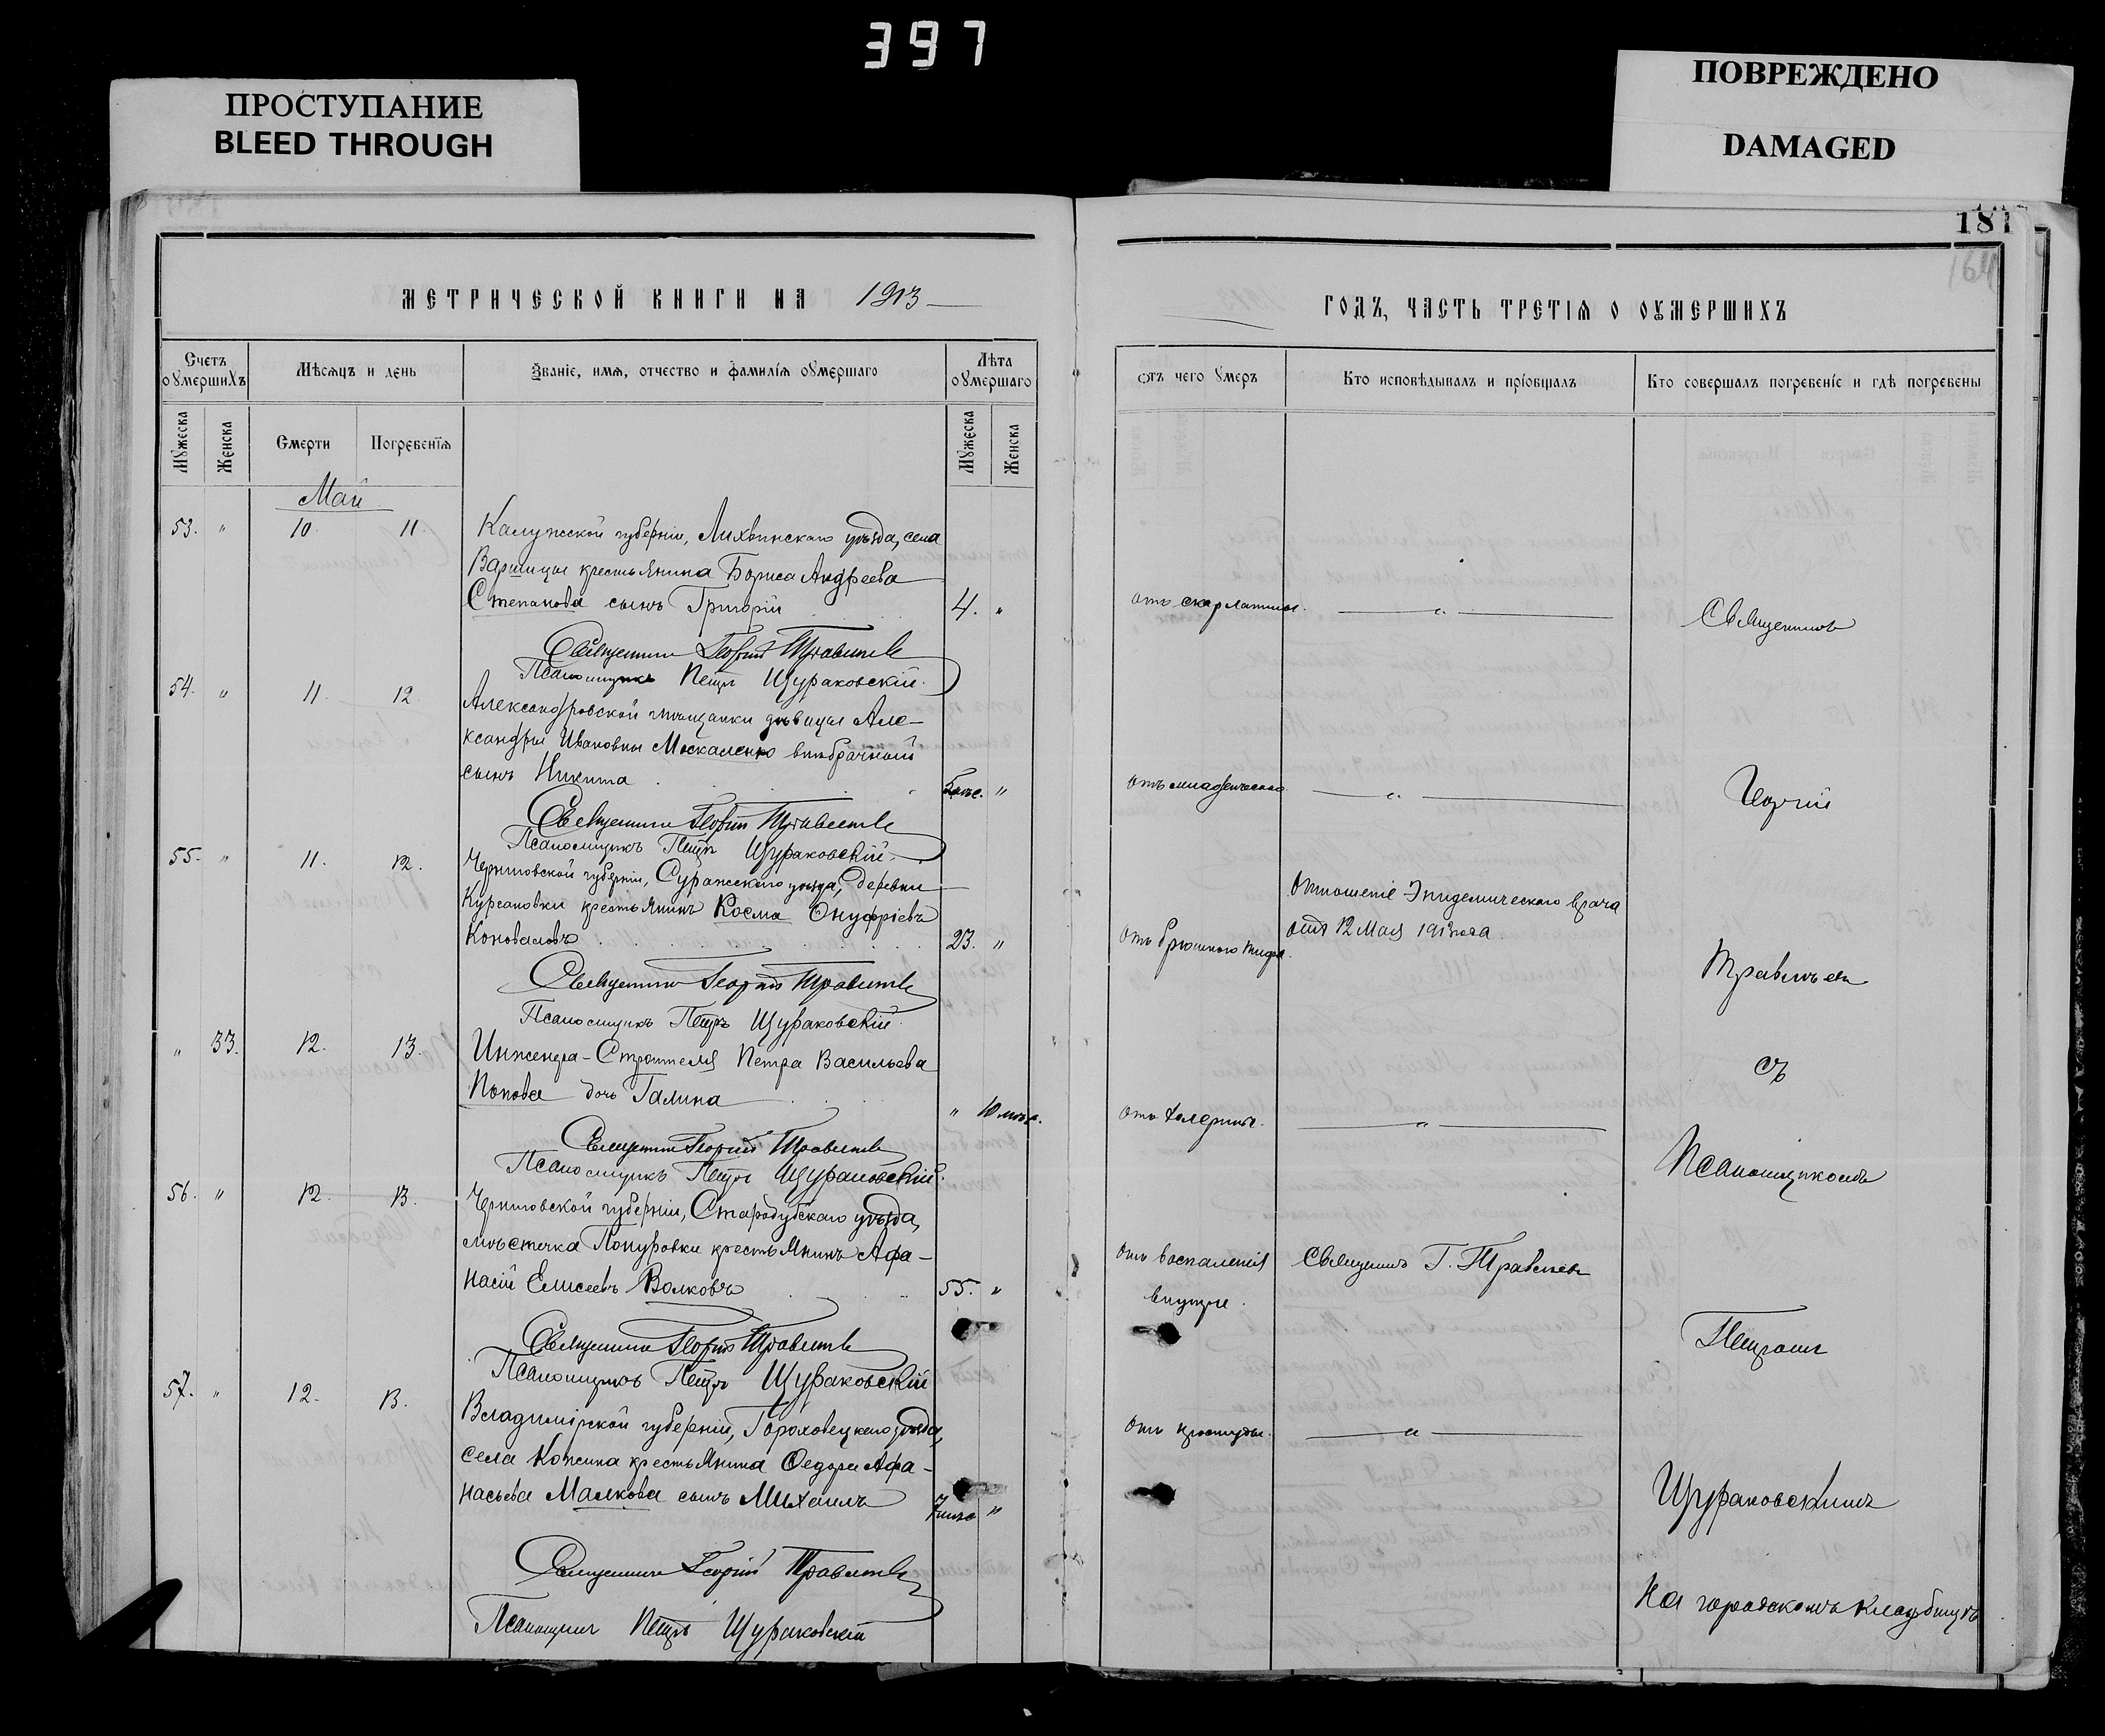 397
ПРОСТУПАНИЕ
BLEED THROUGH
ПОВРЕЖДЕНО
DAMAGED
181
164
МЕТРИЧЕСКОЙ КНИГИ НА 1913
ГОДЪ, ЧАСТЬ ТРЕТІЯ О ОУМЕРШИХЪ
Счетъ оумершихъ
Мѣсяцъ и день
Званіе, имя, отчество и фамилія оумершаго
Лѣта оумершаго
отъ чего умеръ
Кто исповѣдывалъ и пріобщалъ
Кто совершалъ погребеніе и гдѣ погребены
Мужеска
Женска
Смерти
Погребенія
Мужеска
Женска
Май
53. " 10. 11. Калужской губерніи, Лихвинскаго уѣзда, села
Варшицы крестьянина Бориса Андреева
Степанова сынъ Григорій 4. " отъ скарлатины. — " — Священникъ
Священникъ Георгій Травинъ
Псаломщикъ Петръ Щураковскій.
54. " 11. 12. Александровской мѣщанки дѣвицы Але-
ксандры Ивановны Москаленко внѣбрачный
сынъ Никита 5 мѣс. " отъ младенческой — " — Георгій
Священникъ Георгій
Псаломщикъ Петръ Щураковскій.
55. " 11. 12. Черниговской губерніи, Суражскаго уѣзда, деревни
Курсановки крестьянинъ Косма Онуфріевъ
Отношеніе Эпидемическаго врача
Коноваловъ 23. " отъ брюшного тифа. отъ 12 Мая 1913 года.
Священникъ Георгій
Псаломщикъ Петръ Щураковскій.
" 33. 12. 13. Инженера-Строителя Петра Васильева
съ
Попова дочь Галина " 10 мѣс. отъ — " —
Священникъ Георгій
Псаломщикъ Петръ Щураковскій.
Псаломщикомъ
56. " 12. 13. Черниговской губерніи, Стародубскаго уѣзда,
мѣстечка Понуровки крестьянинъ Афа-
насій Елисеевъ Волковъ 55. " отъ воспаленія Священникъ Г.
внутре.
Священникъ Георгій
Петромъ
Псаломщикъ Петръ Щураковскій
57. " 12. 13. Владимірской губерніи, Гороховецкаго уѣзда,
отъ простуды. — " —
села Кожина крестьянина Ѳедора Афа-
насьева Малкова сынъ Михаилъ 7 мѣс. "
Щураковскимъ
Священникъ Георгій
Псаломщикъ Петръ Щураковскій
На городскомъ кладбищѣ